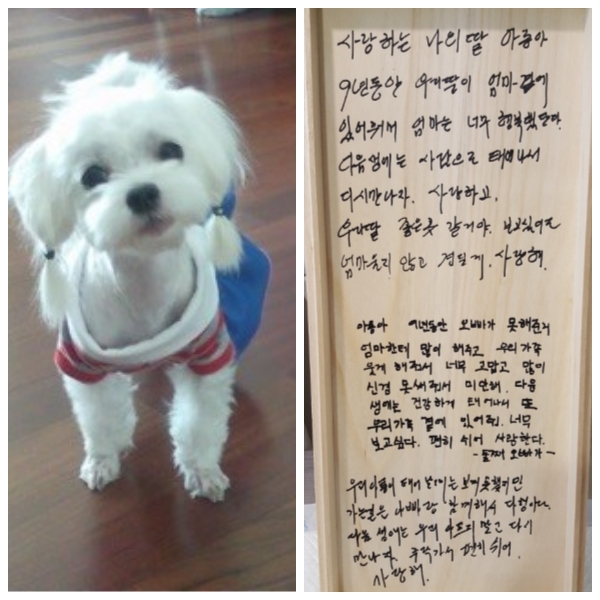 사랑하는 나의 딸 아롱아
9년동안 우리딸이 엄마곁에
있어줘서 엄마는 너무 행복했단다.
다음생에는 사람으로 태어나서
다시만나자. 사랑하고.
우리딸 좋은곳 갈거야. 보고싶어도
엄마울지 않고 견딜게. 사랑해.
아롱아 9년동안 오빠가 못해준거
엄마한테 많이 해주고 우리가족
웃게 해줘서 너무 고맙고 많이
신경 못써줘서 미안해. 다음
생에는 건강하게 태어나서 또
우리가족 곁에 있어줘. 너무
보고싶다. 편히 쉬어 사랑한다.
-둘째 오빠가-
우리 태어 보지못했지만
가는길은 아빠랑 함께해서 다행이다.
다음 생에는 우리 아프지 말고 다시
만나자. 편히 쉬어.
사랑해.